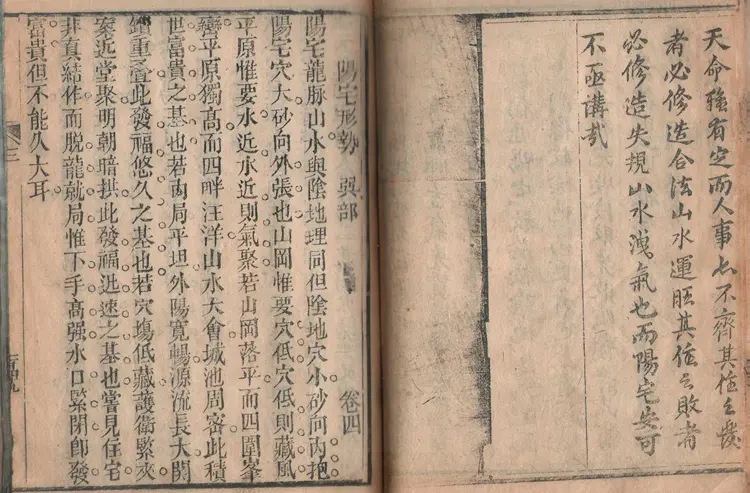 天命雖有定而人事亦不齊其住之發
者必修造合法山水運旺其住之敗者
必修造失規山水洩氣也而陽宅安可
不亟講哉
陽宅形勢 巽部 卷四
陽宅龍脉山水與陰地理同但陰地穴小砂向內抱
陽宅穴大砂向外張也山岡惟要穴低穴低則藏風
平原惟要水近水近則氣聚若山岡落平而四圍峯
巒平原獨高而四畔汪洋山水大會城池周密此積
世富貴之基也若內局平坦外陽寬暢源流長大関
鎖重叠此發福悠久之基也若穴塲低藏護衛緊夾
案近堂聚明朝暗拱此發福迅速之基也嘗見住宅
非真結作而脫龍就局惟下手高强水口緊閉即發
富貴但不能久大耳
三